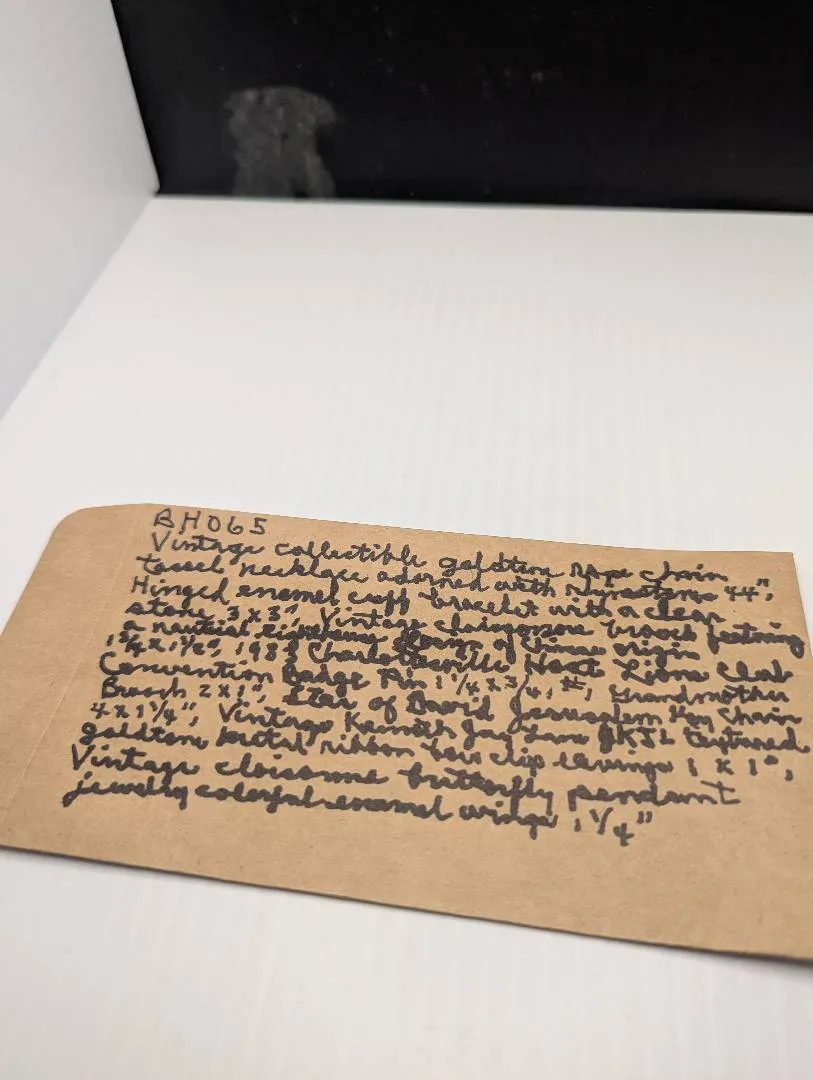 BH065
Vintage collectible goldtone rope chain
tassel necklace adorned with rhinestones 44",
Hinged enamel cuff bracelet with a clear
stone, 3 x 3", Vintage cloisonne brooch featuring
a nautical of Chinese origin
1 3/4 x 1 1/2", 1983 Charlottesville Host Lions Club
Convention Badge Pin 1 1/4 x 3/4, Grandmother
Brooch 2 x 1", Star of David Jerusalem Key Chain
4 x 1 1/4", Vintage Kenneth Jay Lane KJL textured
goldtone metal ribbon bow clip earrings 1 x 1",
Vintage cloisonne butterfly pendant
jewelry colorful enamel wings 1 1/4"